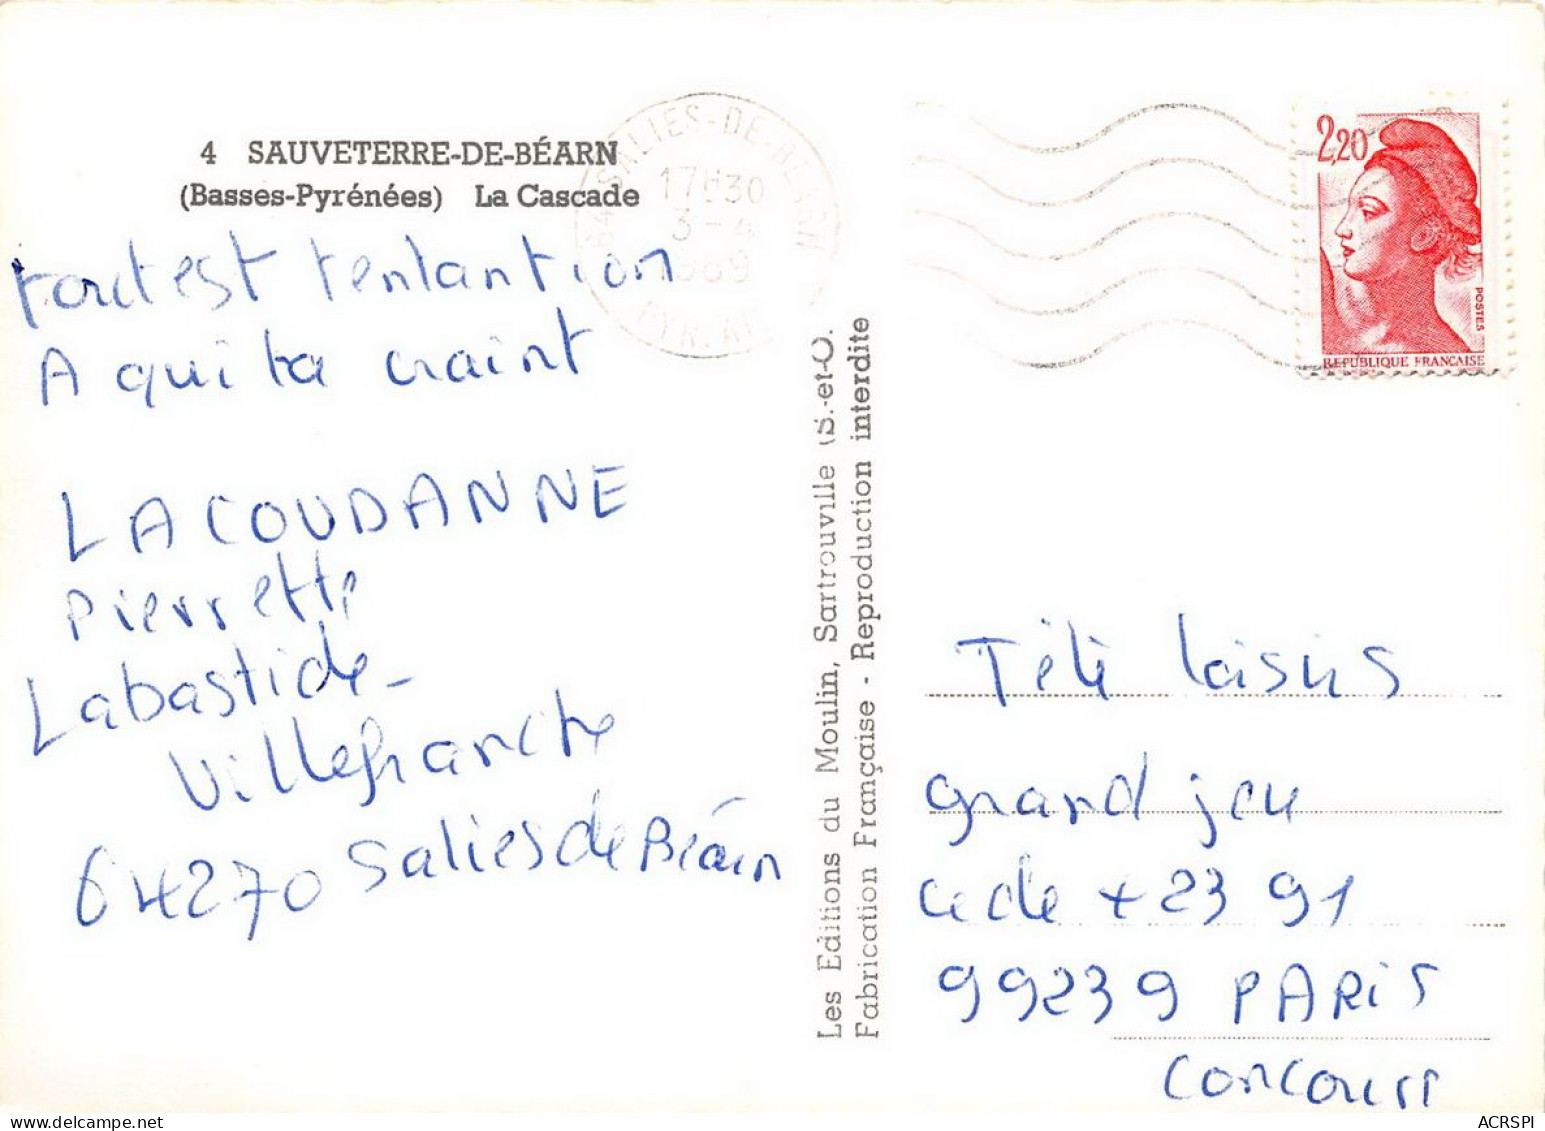 4 SAUVETERRE-DE-BÉARN
(Basses-Pyrénées) La Cascade
tout est tentantion
A qui la craint
LACOUDANNE
Pierrette
Labastide-
Villefranche
64270 Salies de Béarn
64 SALIES-DE-BEARN
17H30
3-4
1989
PYR. AT
Les Editions du Moulin, Sartrouville (S.-et-O.
Fabrication Française - Reproduction interdite
2,20
POSTES
REPUBLIQUE FRANCAISE
Télé loisirs
grand jeu
cede + 23 91
99239 PARIS
concours
ACRSPI